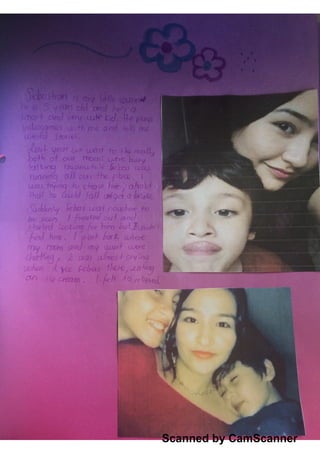 Sebastian is my little cousin
he is 5 years old and he's a
smart and very cute kid. He plays
videogames with me and tells me
stories.
Last year we went to the mall,
both of our moms were busy
talking meanwhile Sebas was
running all over the place. I
was trying to chase him, afraid
that he could fall or get a bruise.
Suddenly Sebas was nowhere to
be seen. I freaked out and
started looking for him but I couldn't
find him. I went back where
my mom and my aunt were
chatting, I was almost crying
when I see Sebas there, eating
an ice cream. I felt so relieved
Scanned by CamScanner